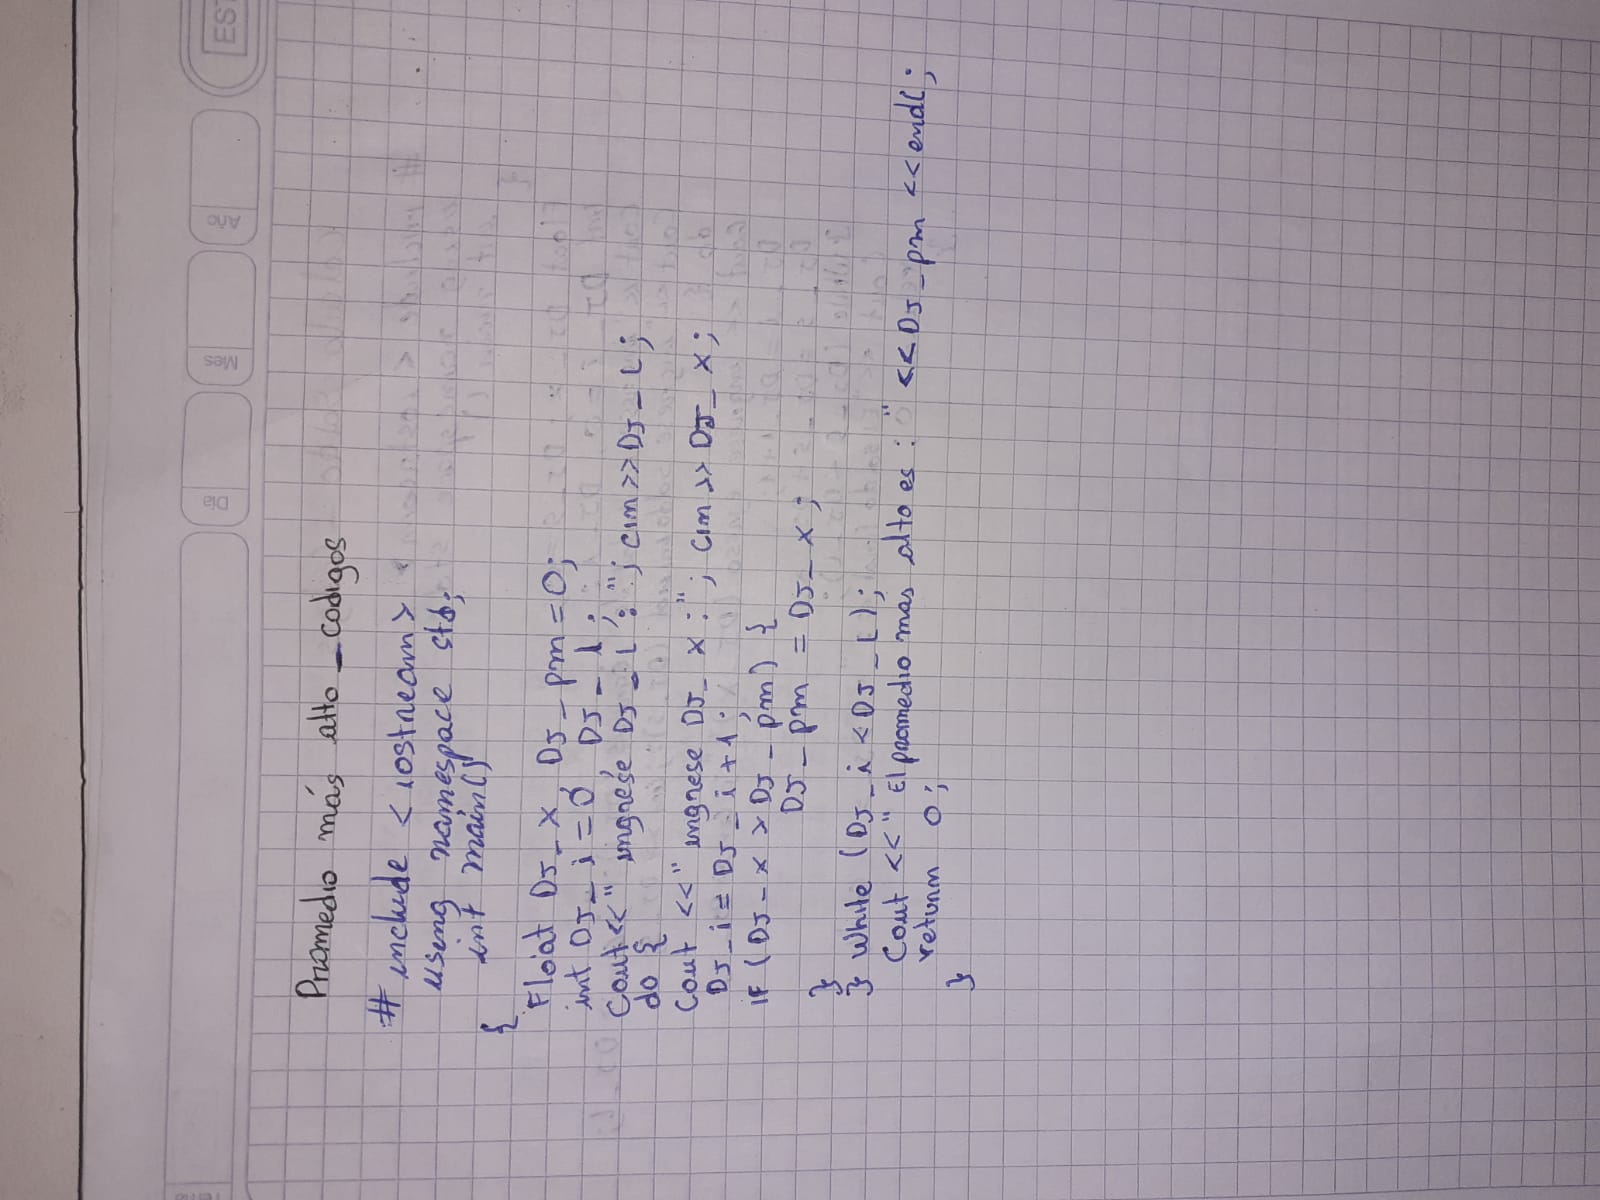 Tema
Día
Mes
Año
EST
Promedio más alto_codigos
# include <iostream>
using namespace std;
int main()
{
Float DJ_x, DJ_pm=0;
int DJ_i=0, DJ_l;
Cout<<" ingrese DJ_L: "; cin>>DJ_L;
do {
Cout <<" ingrese DJ_x:"; cin>> DJ_x;
DJ_i= DJ_i+1;
if (DJ_x > DJ_pm) {
DJ_pm = DJ_x;
}
} While (DJ_i<DJ_L);
Cout <<" El promedio mas alto es: " <<DJ_pm <<endl;
return 0;
}